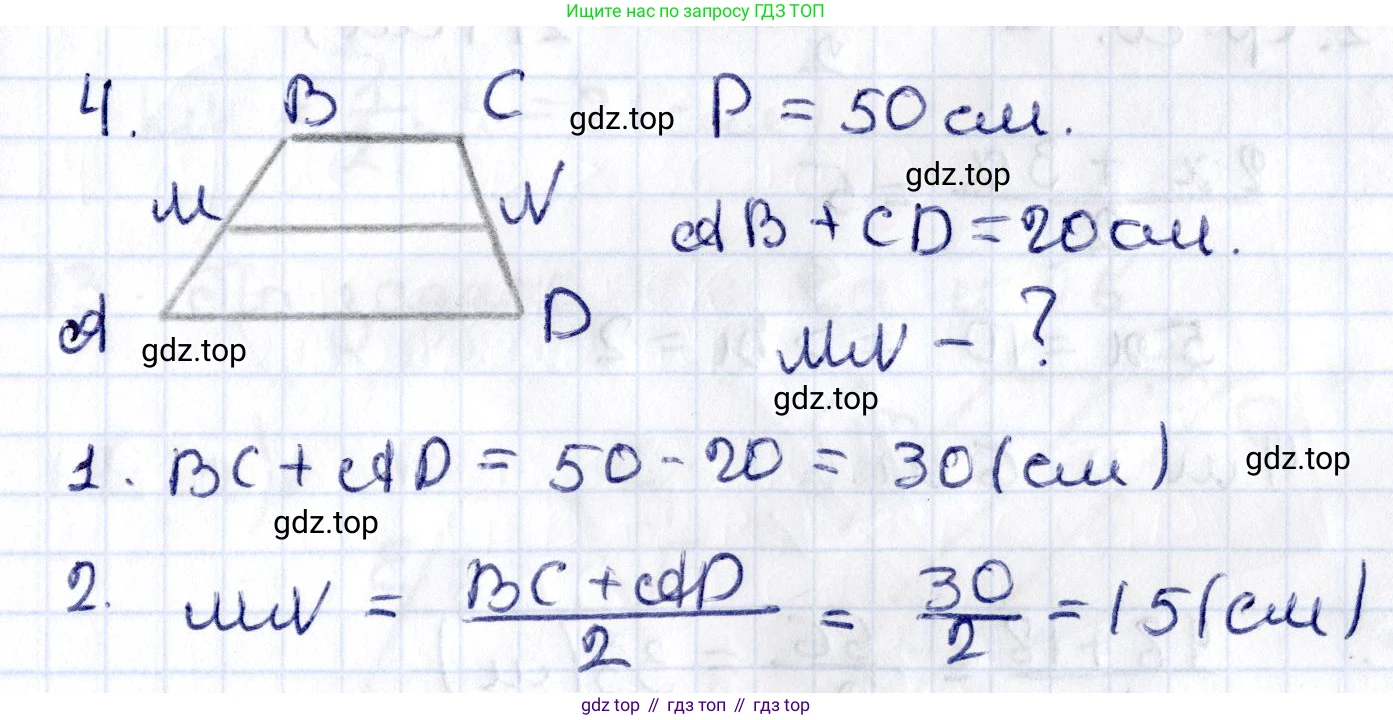 Ищите нас по запросу ГДЗ ТОП
4. B C gdz.top P = 50 см.
gdz.top
M N AB + CD = 20 см.
A D MN - ?
gdz.top gdz.top
1. BC + AD = 50 - 20 = 30 (см) gdz.top
gdz.top
2. MN = \frac{BC + AD}{2} = \frac{30}{2} = 15 (см)
gdz top // гдз топ // гдз top